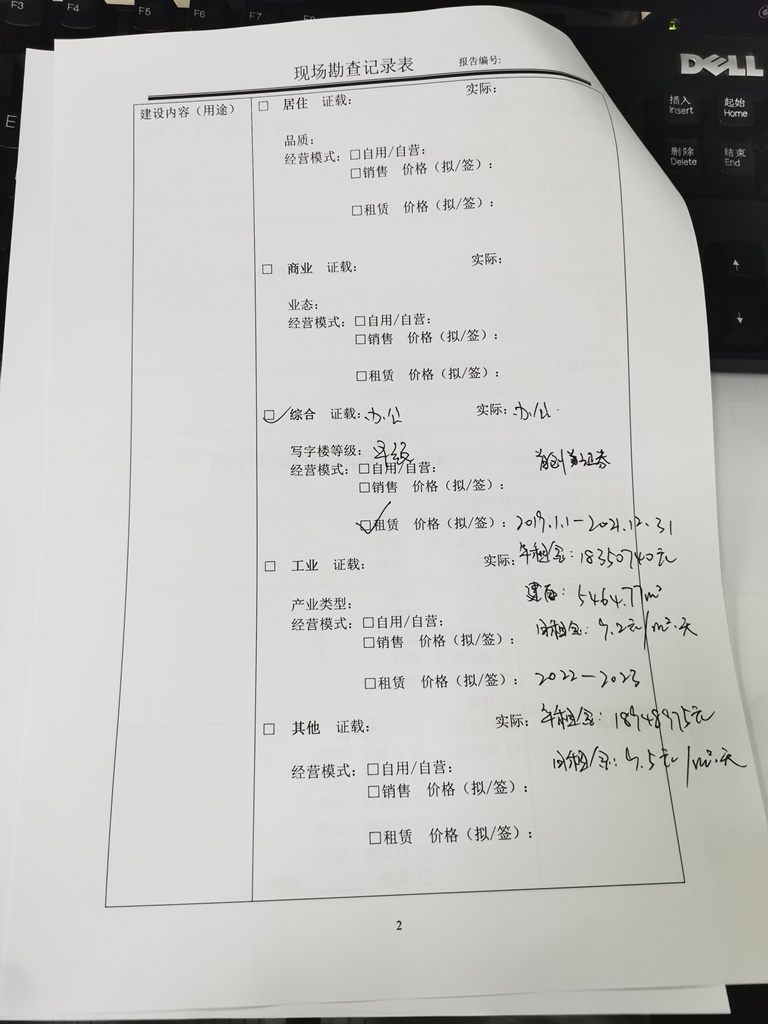 F3 F4 F5 F6 F7
E
DELL
插入 Insert
起始 Home
删除 Delete
结束 End
现场勘查记录表 报告编号:
建设内容（用途）
□ 居住 证载: 实际:
品质:
经营模式: □自用/自营:
□销售 价格（拟/签）:
□租赁 价格（拟/签）:
□ 商业 证载: 实际:
业态:
经营模式: □自用/自营:
□销售 价格（拟/签）:
□租赁 价格（拟/签）:
☑ 综合 证载: 办公 实际: 办公
写字楼等级: 级
经营模式: □自用/自营: 证券
□销售 价格（拟/签）:
☑租赁 价格（拟/签）: 2019.1.1—2021.12.31
年租金: 18350740元
□ 工业 证载: 实际:
建面: 5464.77m²
产业类型:
经营模式: □自用/自营:
日租金: 9.2元/m²·天
□销售 价格（拟/签）:
□租赁 价格（拟/签）: 2022—2023
□ 其他 证载: 实际: 年租金: 18948975元
日租金: 9.5元/m²·天
经营模式: □自用/自营:
□销售 价格（拟/签）:
□租赁 价格（拟/签）:
2